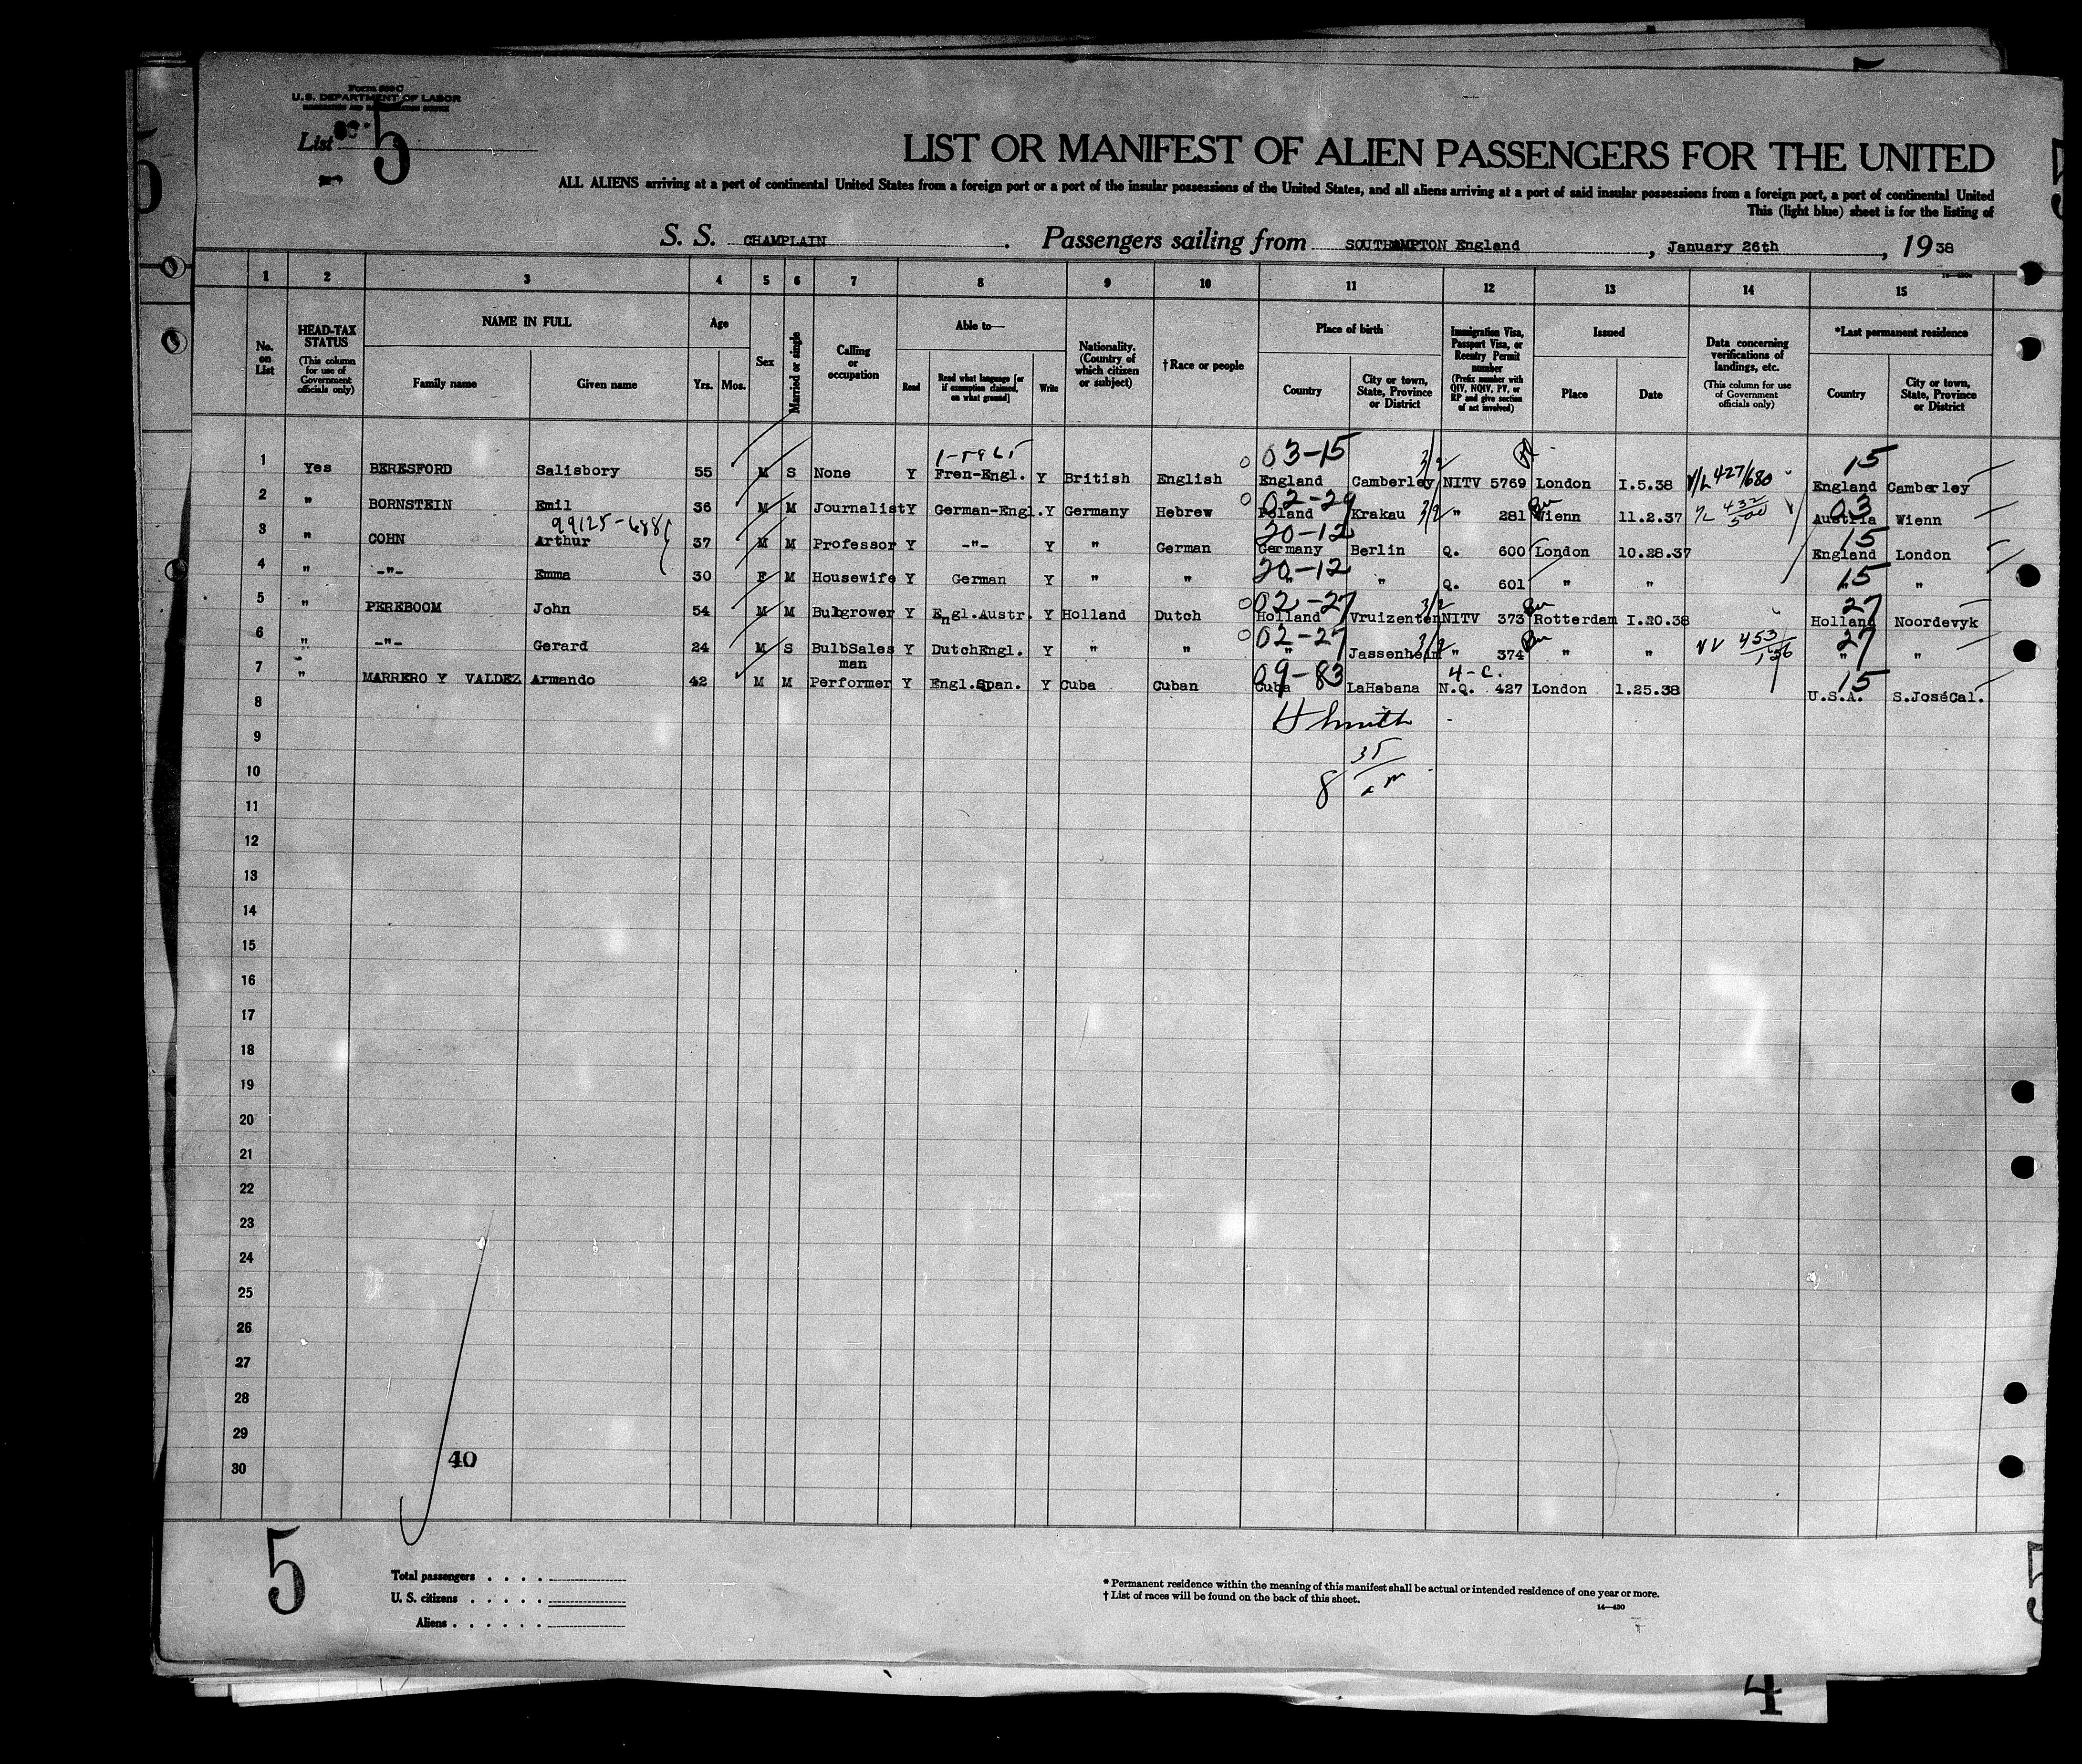 Form 500 C
U. S. DEPARTMENT OF LABOR
List 5
LIST OR MANIFEST OF ALIEN PASSENGERS FOR THE UNITED
ALL ALIENS arriving at a port of continental United States from a foreign port or a port of the insular possessions of the United States, and all aliens arriving at a port of said insular possessions from a foreign port, a port of continental United
This (light blue) sheet is for the listing of
S. S. CHAMPLAIN . Passengers sailing from SOUTHAMPTON England , January 26th , 19 38
1 2 3 4 5 6 7 8 9 10 11 12 13 14 15
No. on List
HEAD-TAX STATUS
(This column for use of Government officials only)
NAME IN FULL
Family name Given name
Age
Yrs. Mos.
Sex
Married or single
Calling or occupation
Able to—
Read
Read what language [or if exemption claimed, on what ground]
Write
Nationality. (Country of which citizen or subject)
†Race or people
Place of birth
Country
City or town, State, Province or District
Immigration Visa, Passport Visa, or Reentry Permit number
(Prefix number with QIV, NQIV, PV, or RP and give section of act involved)
Issued
Place Date
Data concerning verifications of landings, etc.
(This column for use of Government officials only)
*Last permanent residence
Country
City or town, State, Province or District
03-15 3/2 15
1 Yes BERESFORD Salisbory 55 M S None Y Fren-Engl. Y British English England Camberley NITV 5769 London I.5.38 V/L 427/680 England Camberley
02-29 03
2 " BORNSTEIN Emil 36 M M Journalist Y German-Engl. Y Germany Hebrew Poland Krakau 3/2 " 281 Wienn 11.2.37 Austria Wienn
99125-688 20-12 15
3 " COHN Arthur 37 M M Professor Y -"- Y " German Germany Berlin Q. 600 London 10.28.37 England London
20-12 15
4 " -"- Emma 30 F M Housewife Y German Y " " " " Q. 601 " " " "
02-27 3/2 27
5 " PEREBOOM John 54 M M Bulbgrower Y Engl.Austr. Y Holland Dutch Holland Vruizenten NITV 373 Rotterdam I.20.38 Holland Noordevyk
02-27 3/2 453/126 27
6 " -"- Gerard 24 M S BulbSales man Y DutchEngl. Y " " " Jassenheim " 374 " " " "
09-83 4-C. 15
7 " MARRERO Y VALDEZ Armando 42 M M Performer Y Engl.Span. Y Cuba Cuban Cuba LaHabana N.Q. 427 London 1.25.38 U.S.A. S.JoséCal.
8
H Smith
9
35
10
8
11
12
13
14
15
16
17
18
19
20
21
22
23
24
25
26
27
28
29
40
30
5
Total passengers . . . .
U. S. citizens . . . . .
Aliens . . . . . .
* Permanent residence within the meaning of this manifest shall be actual or intended residence of one year or more.
† List of races will be found on the back of this sheet.
14—430
5
4